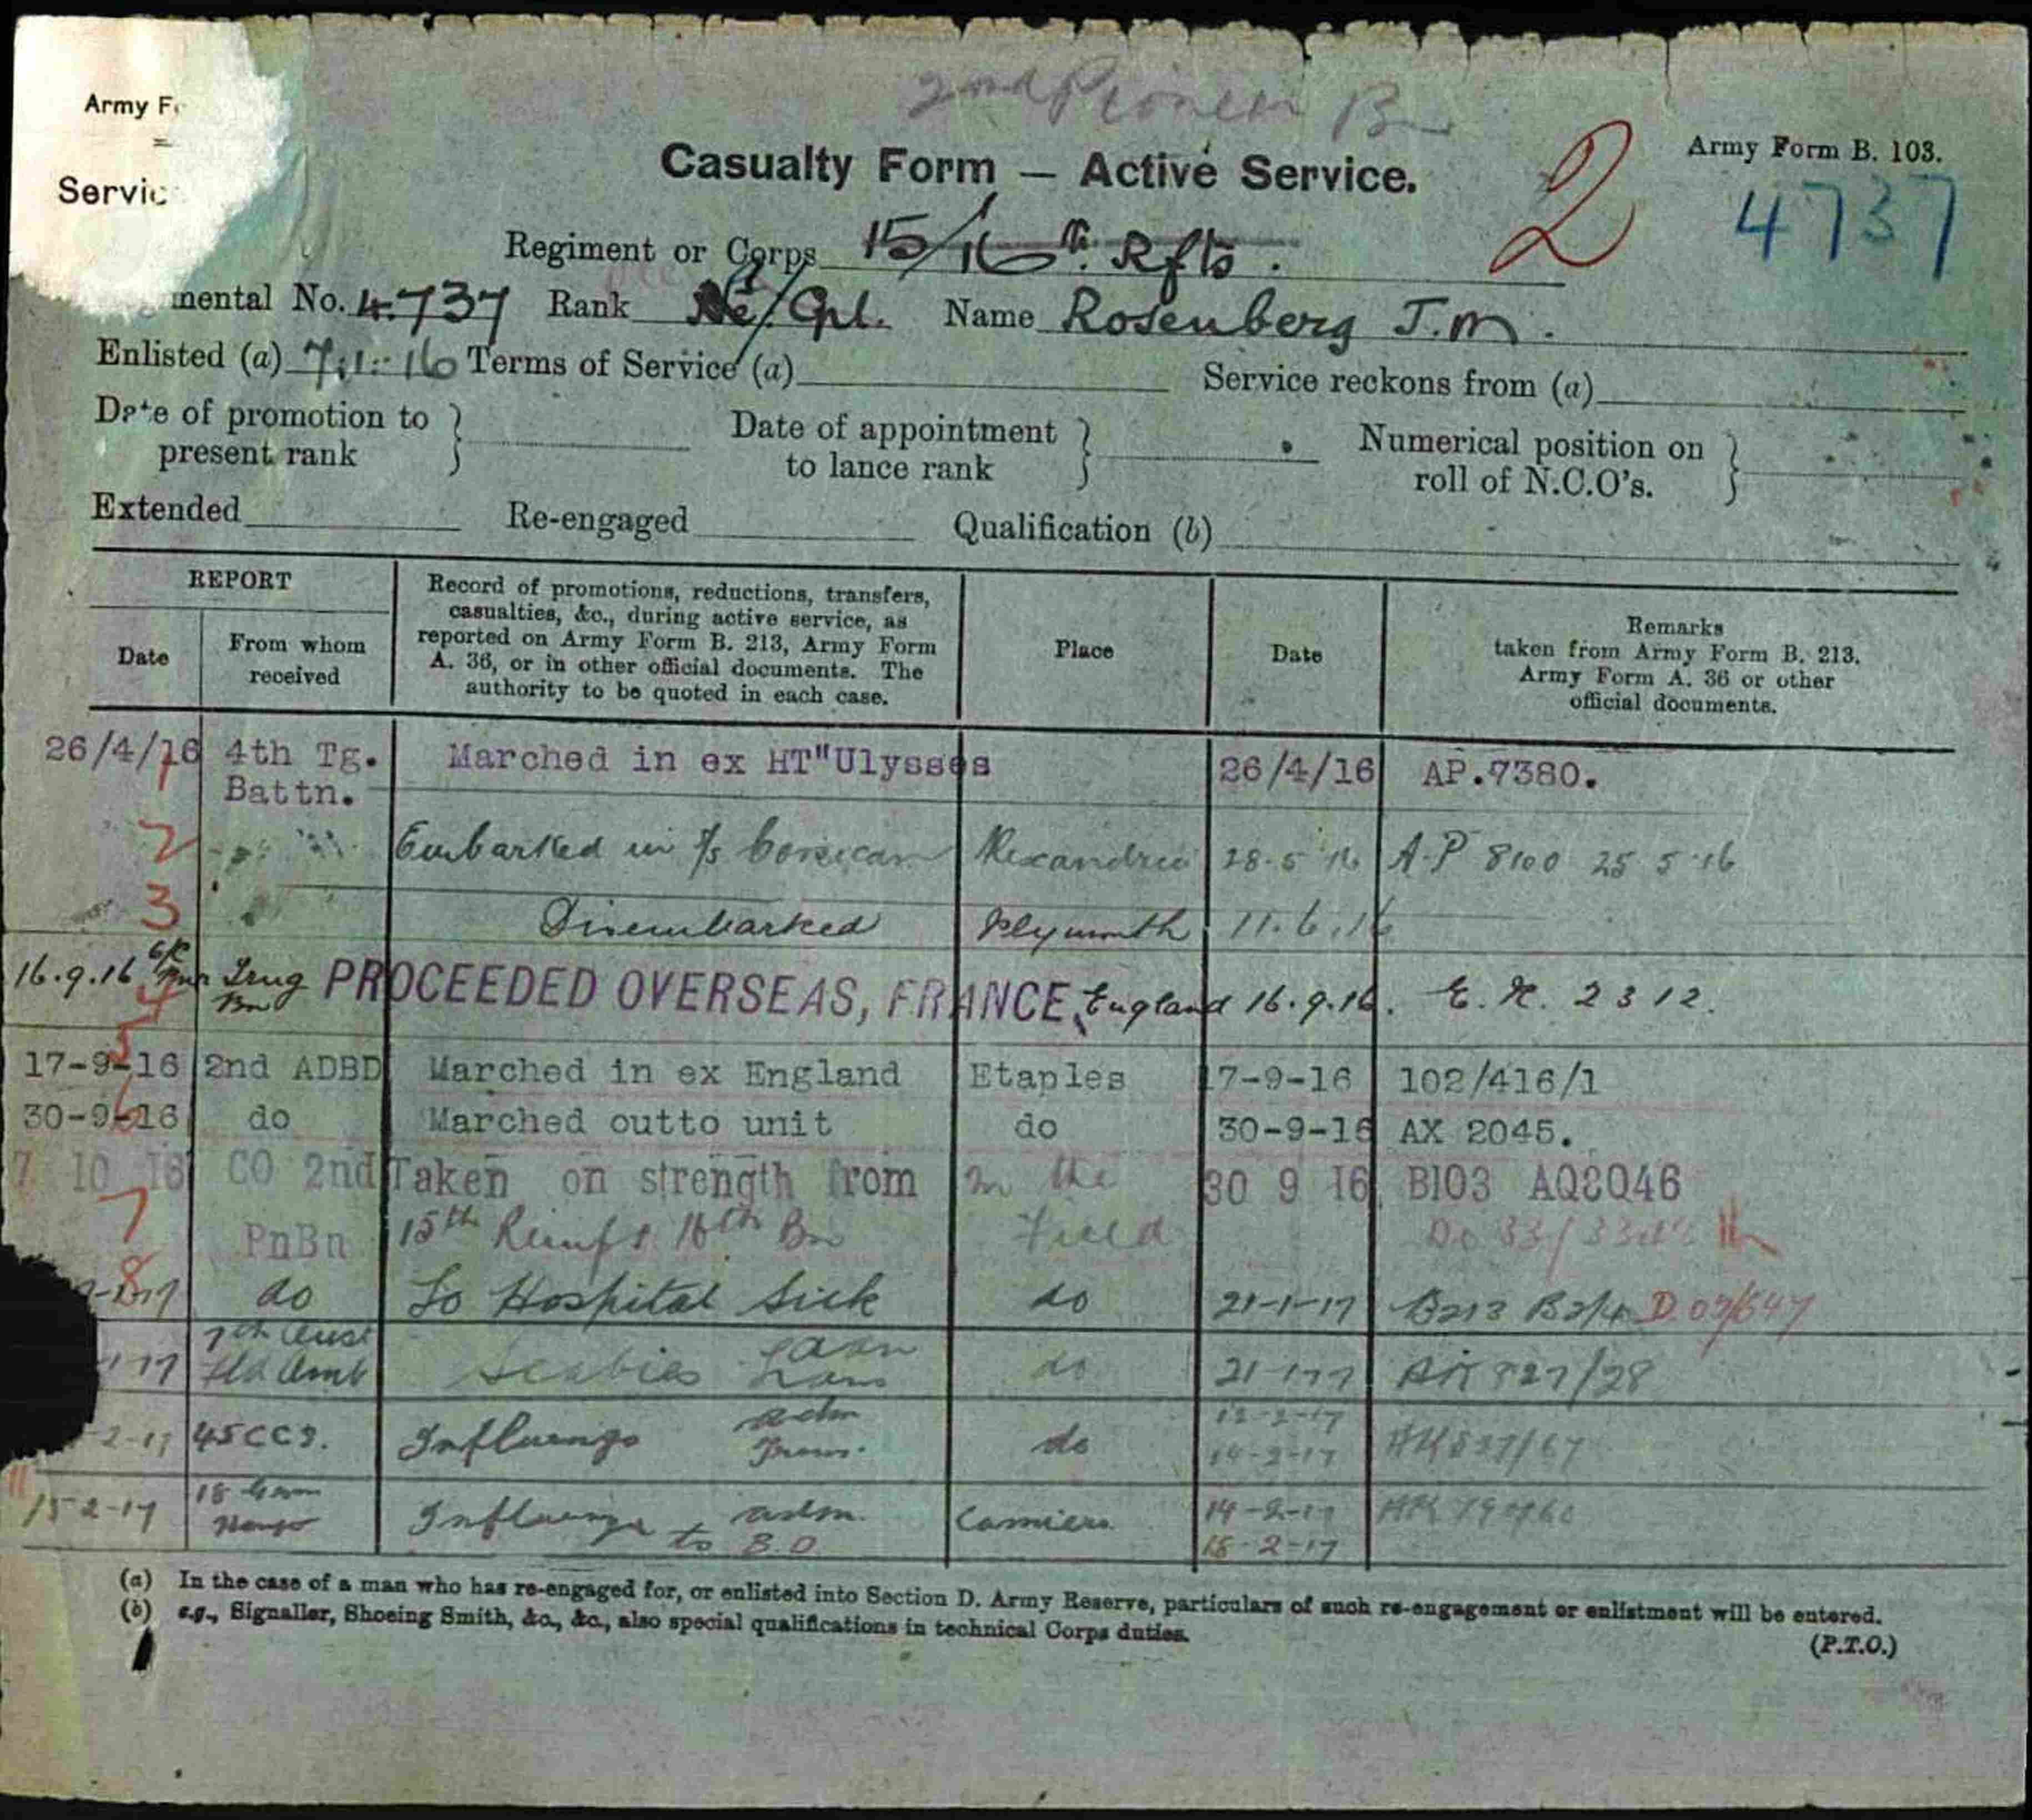 2nd Pioneer Bn
Army F
Casualty Form — Active Service.
Army Form B. 103.
Servic
2
4737
Regiment or Corps 15/16th Rfts.
mental No. 4737 Rank A/Cpl. Name Rosenberg J.M.
Enlisted (a) 7.1.16 Terms of Service (a) Service reckons from (a)
Date of promotion to } Date of appointment } Numerical position on }
present rank to lance rank roll of N.C.O's.
Extended Re-engaged Qualification (b)
REPORT
Date
From whom
received
Record of promotions, reductions, transfers,
casualties, &c., during active service, as
reported on Army Form B. 213, Army Form
A. 36, or in other official documents. The
authority to be quoted in each case.
Place
Date
Remarks
taken from Army Form B. 213,
Army Form A. 36 or other
official documents.
26/4/16 4th Tg. Marched in ex HT"Ulysses 26/4/16 AP.7380.
1
Battn.
2 Embarked in T/S Corsican Alexandria 28.5.16 A.P 8100 25 5 16
3 Disembarked Plymouth 11.6.16
16.9.16 Trng PROCEEDED OVERSEAS, FRANCE, England 16.9.16. E.K. 2312.
4 Bn
5
17-9-16 2nd ADBD Marched in ex England Etaples 17-9-16 102/416/1
6
30-9-16 do Marched outto unit do 30-9-16 AX 2045.
7 10 16 CO 2nd Taken on strength from In the 30 9 16 B103 AQ8046
7 PnBn 15th Reinfs 16th Bn Field
8 do To Hospital Sick do 21-1-17 B213 D 09/547
7th Aust
17 Fld Amb Scabies do 21-1-17
-2-17 45CCS. Influenza Adm 12-2-17
Trans. do 14-2-17
15-2-17 18 Influenza adm. Camiers 14-2-17
to B.D 18-2-17
(a) In the case of a man who has re-engaged for, or enlisted into Section D. Army Reserve, particulars of such re-engagement or enlistment will be entered.
(b) e.g., Signaller, Shoeing Smith, &c., &c., also special qualifications in technical Corps duties.
(P.T.O.)